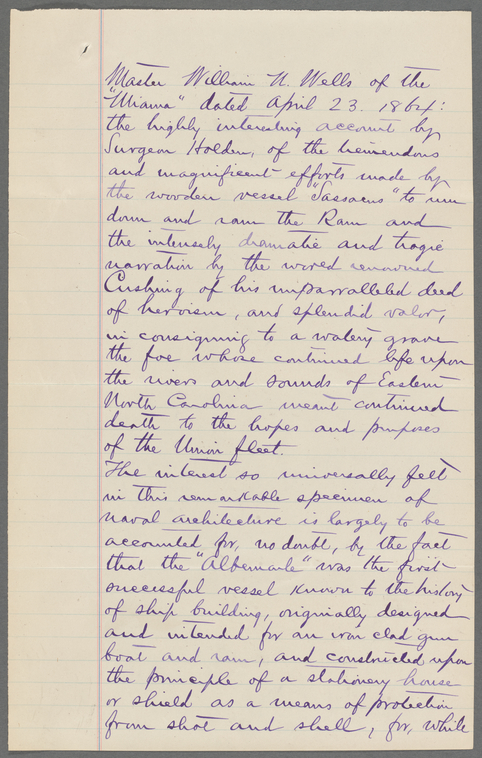 Master William N. Wells of the
"Miama" dated April 23. 1864:
the highly interesting account by
Surgeon Holden, of the tremendous
and magnificent efforts made by
the wooden vessel "Sassacus" to run
down and ram the Ram and
the intensely dramatic and tragic
narration by the world renowned
Cushing of his unparralleled deed
of heroism, and splendid valor,
in consigning to a watery grave
the foe whose continued life upon
the rivers and sounds of Eastern
North Carolina meant continued
death to the hopes and purposes
of the Union fleet.
The interest so universally felt
in this remarkable specimen of
naval architecture is largely to be
accounted for, no doubt, by the fact
that the "Albemarle" was the first
successful vessel known to the history
of ship building, originally designed
and intended for an iron clad gun
boat and ram, and constructed upon
the principle of a stationery house
or shield as a means of protection
from shot and shell, for, while